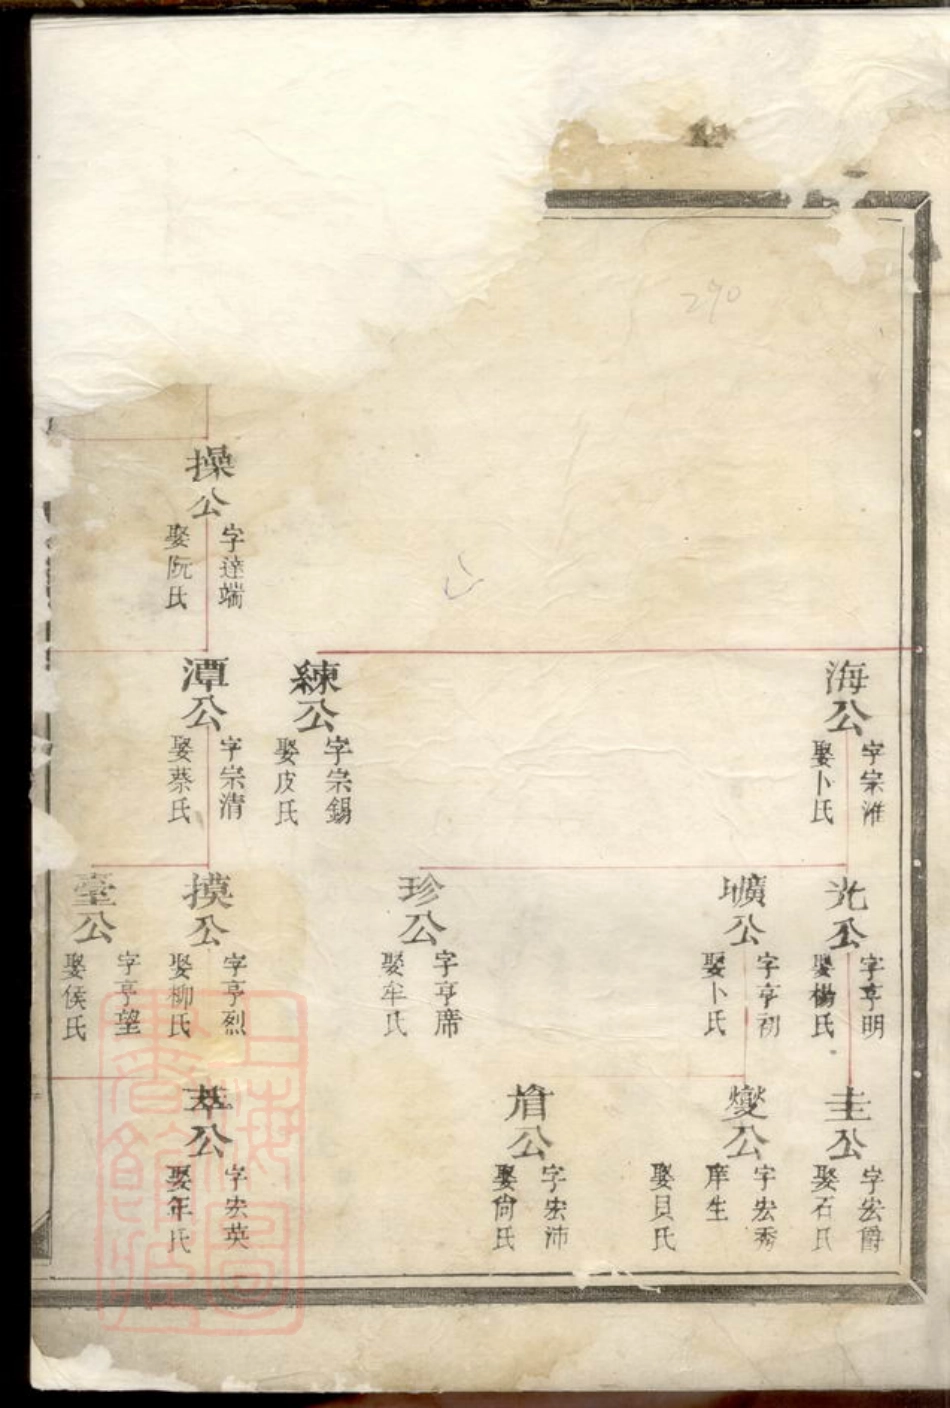 290
操公
字達端
娶阮氏
海公
字宗淮
娶卜氏
練公
字宗錫
娶皮氏
潭公
字宗清
娶蔡氏
光公
字亨明
娶楊氏
壙公
字亨初
娶卜氏
珍公
字亨席
娶牟氏
摸公
字亨烈
娶柳氏
臺公
字亨望
娶侯氏
圭公
字宏爵
娶石氏
燮公
字宏秀
庠生
娶貝氏
公
字宏沛
娶尙氏
萃公
字宏英
娶年氏
上海圖書館藏